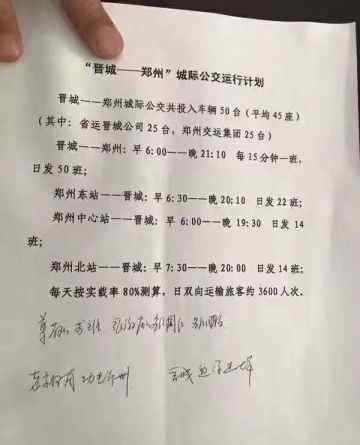 “晋城——郑州”城际公交运行计划
晋城——郑州城际公交共投入车辆50台（平均45座）
（其中：省运晋城公司25台，郑州交运集团25台）
晋城——郑州：早6:00——晚21:10 每15分钟一班，
日发50班；
郑州东站——晋城：早6:30——晚20:10 日发22班；
郑州中心站——晋城：早6:00——晚19:30 日发14
班；
郑州北站——晋城：早7:30——晚20:00 日发14班；
每天按实载率80%测算，日双向运输旅客约3600人次。